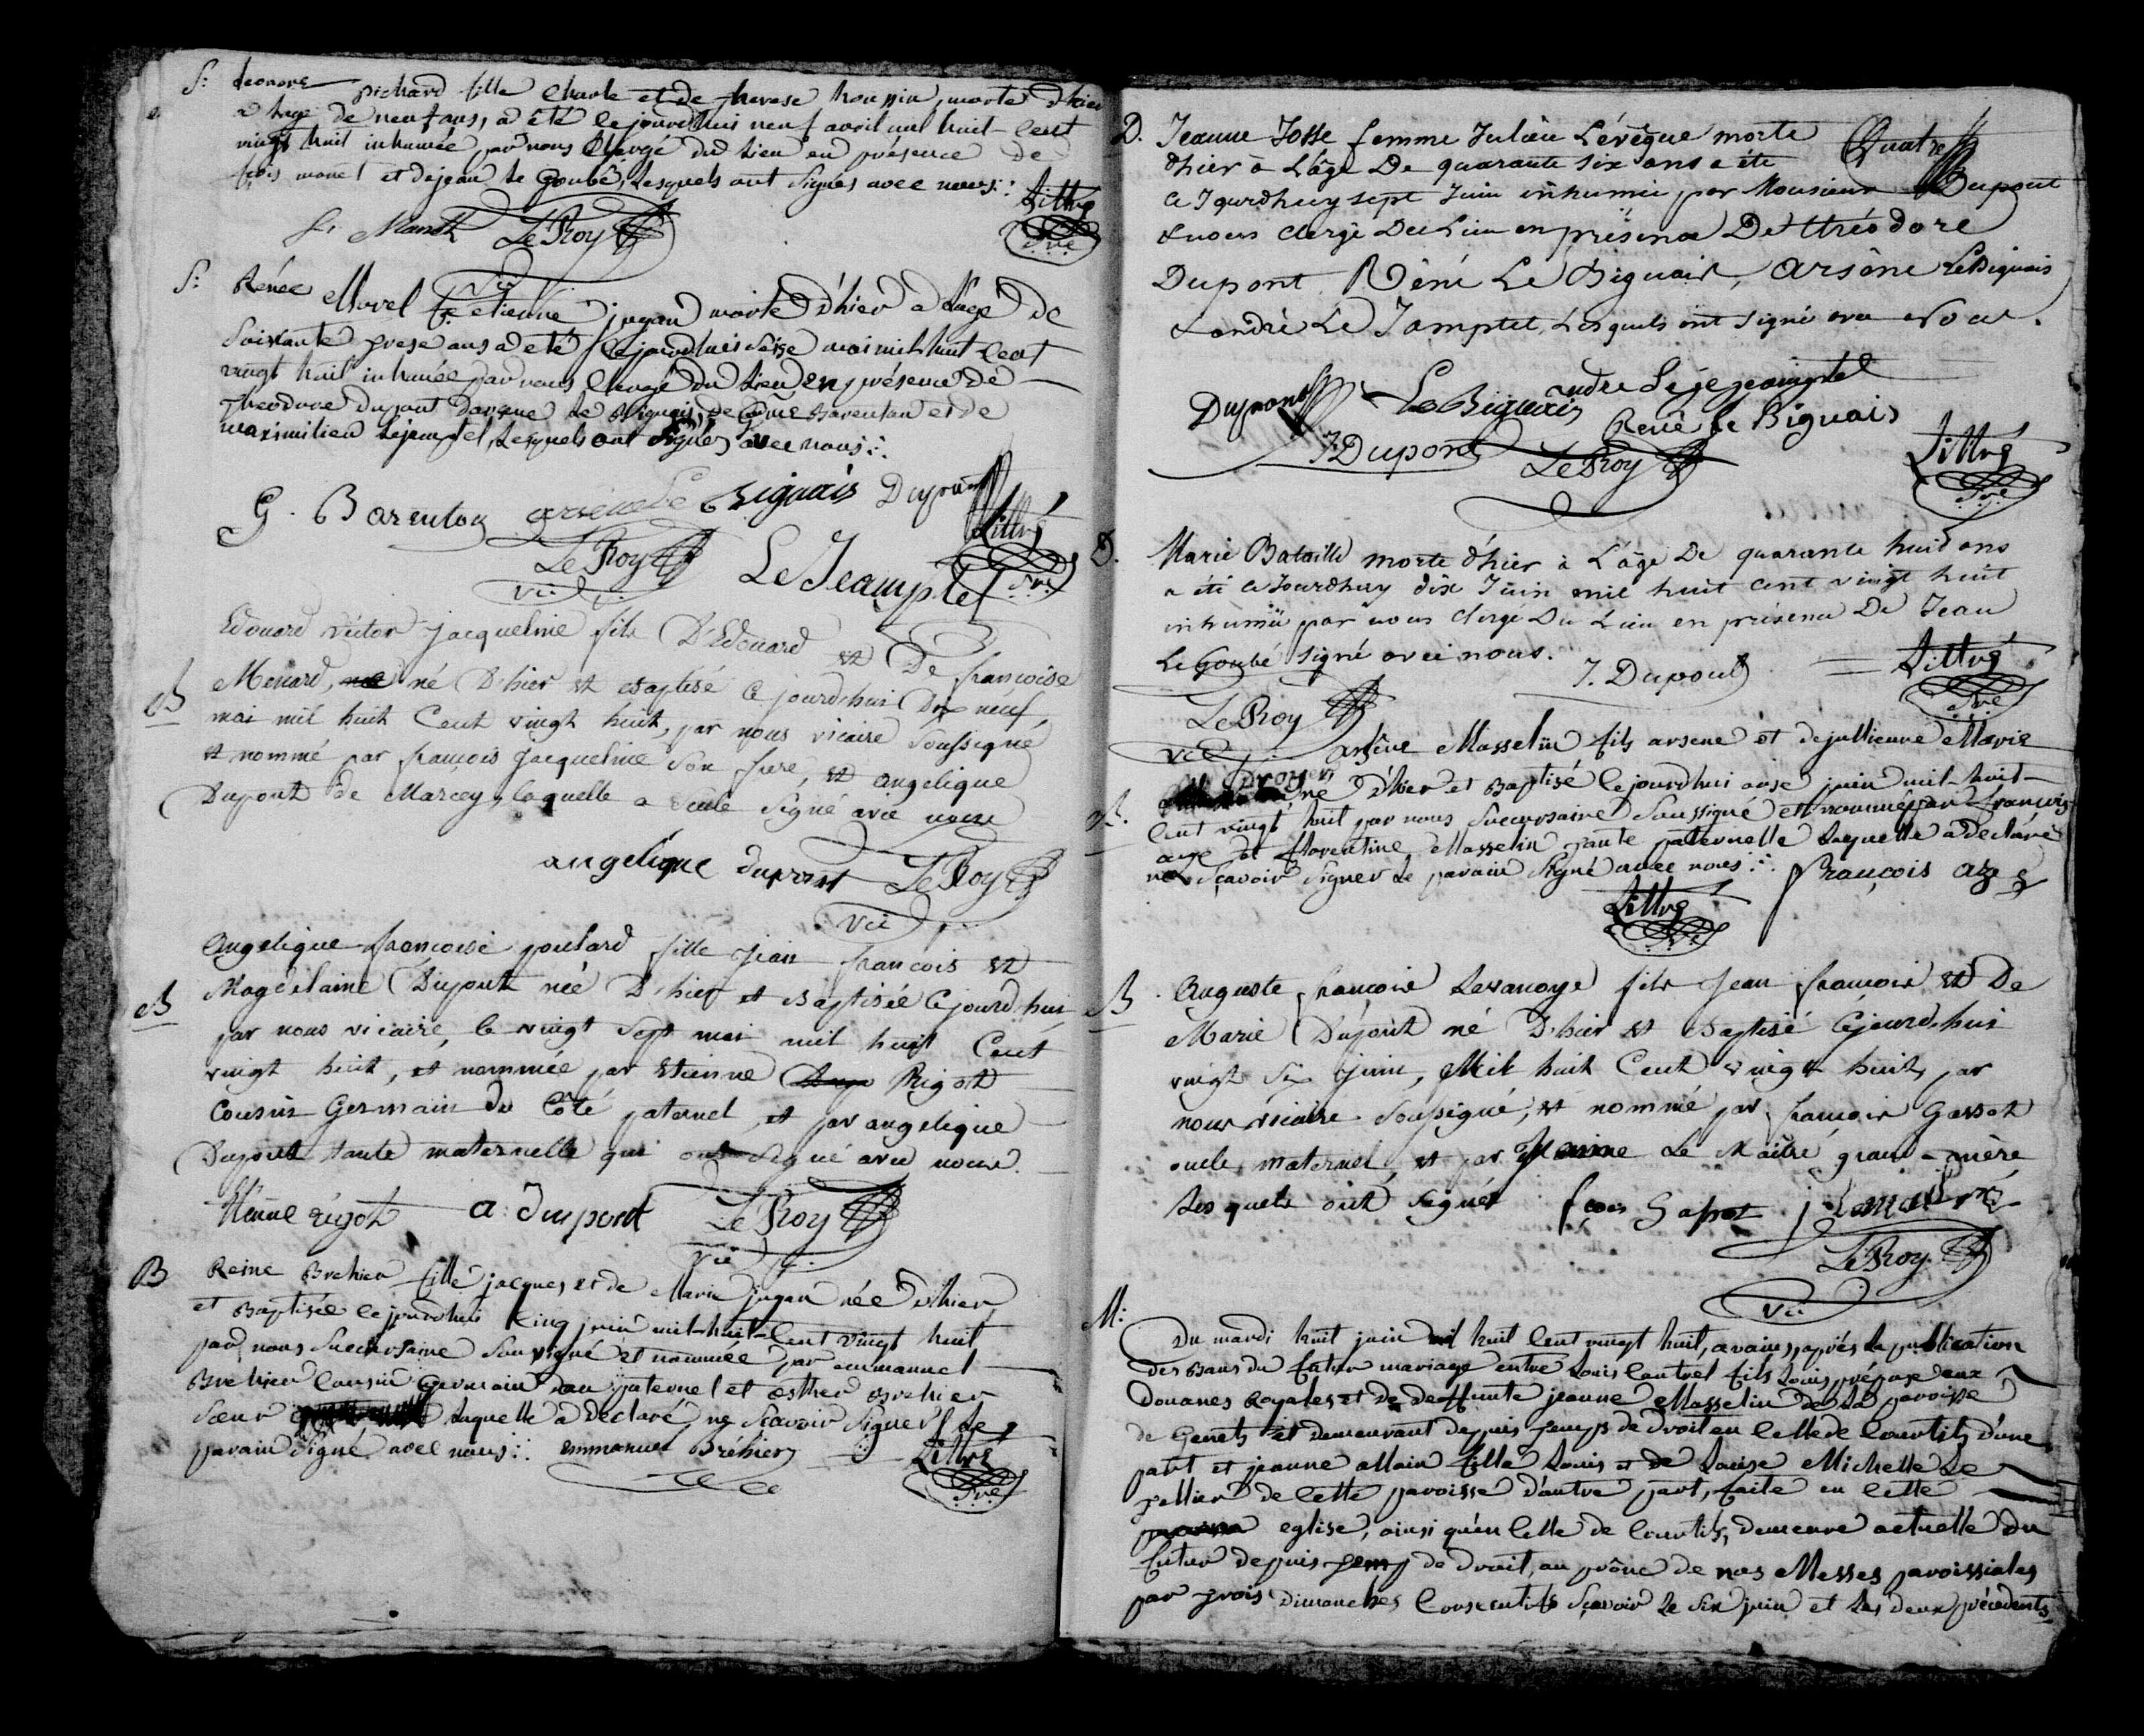 S: leonore pichard fille Charle et de therese houssin, morte d'hier
a lage de neuf ans, a été cejourdhui neuf avril mil huit-cent
vingt huit inhumée par nous Clergé du lieu en présence de
fçois manet et de jean le Goubé, lesquels ont Signés avec nous:
Littré
LeRoy
S: Rénée Morel fe etienne jugan morte d'hier a l'age de
Soixante trese ans a eté cejourdhui seise mai mil-huit-Cent
vingt huit inhumée par nous Clergé du lieu en présence de
theodore dupont d'arsene le Biguais, de Barenton et de
maximilien lejemptel, lesquels ont signés avec nous:
G. Barenton arsène Le Biguais Dupont
Littré
LeRoy Le Jeamptel
vic
B Edouard victor jacqueline fils D'Edouard et De françoise
Menard, né D'hier et Baptisé Cejourd'hui Dix neuf,
mai mil huit Cent vingt huit, par nous vicaire Soussigné
et nommé par françois Jacqueline Son frere, et angelique
Dupont de Marcey, laquelle a Seule Signé avec nous
angélique dupont LeRoy
vic
B Angelique françoise poulard fille jean françois et
Magdelaine Dupont née D'hier et Baptisée Cejourd'hui
par nous vicaire, le vingt Sept mai mil huit Cent
vingt huit, et nommée par Etienne Rigot
Cousin Germain du Côté paternel, et par angelique
Dupont tante maternelle qui ont Signé avec nous.
Etienne rigot a. dupont LeRoy
vic
B Reine Brehier fille jacques et de Marie jugan née d'hier
et Baptisée cejourdhui Cinq juin mil-huit-Cent vingt huit
par nous Succursaire Soussigné et nommée par emmanuel
Brehier Cousin Germain paternel et esther Brehier
Sœur laquelle a déclaré ne Scavoir Signer le
parain Signé avec nous: emmanuel Bréhier Littré
D. Jeanne Josse femme Julien Lévêque morte Quatre
d'hier à l'âge De quarante six ans a été
ce Jourdhuy sept Juin inhumée par Monsieur Dupont
& nous clergé Du Lieu en présence De théodore
Dupont, Réné Le Biguais, Arsène LeBiguais
& andré Le Jamptel, Lesquels ont signé avec Nous.
Dupont Le Biguais andre Lejejeamptel
René le Biguais
T. Dupont LeRoy Littré
D. Marie Bataille morte d'hier à L'âge De quarante huit ans
a été ce Jourdhuy dix Juin mil huit cent vingt huit
inhumée par nous clergé Du Lieu en présence De Jean
Le Goubé signé avec nous.
T. Dupont Littré
LeRoy
vic
B. arsène Masselin fils arsene et de jullienne Marie
né d'hier et Baptisé Cejourdhui onse juin mil-huit-
Cent vingt huit par nous Succursaire Soussigné et nommé par françois
aze et florentine Masselin tante paternelle laquelle a déclaré
ne Scavoir Signer le parain Signé avec nous: François aze
Littré
B Auguste françois Levanoye fils Jean françois et De
Marie Dupont né D'hier et Baptisé Cejourd'hui
vingt Six juin, Mil huit Cent vingt huit, par
nous vicaire Soussigné, et nommé par françois Gassot
oncle maternel, et par Le Maître grand-mère
lesquels ont signés fçois Gassot j lemaitre
LeRoy
vic
M: Du mardi huit juin mil huit Cent vingt huit, avains, après la publication
des Bans du futur mariage entre Louis Cantrel fils Louis préposé aux
Douanes Royales et de deffunte jeanne Masselin de la paroisse
de Genets et demeurant depuis temps de droit en Celle de Courtils, d'une
part et jeanne allain fille Louis et de Louise Michelle Le
pellier de Cette paroisse d'autre part, faite en Cette
eglise, ainsi qu'en Celle de Courtils, demeure actuelle du
futur depuis temp de droit, au prône de nos Messes paroissiales
par trois Dimanches Consecutifs Scavoir le Six juin et les deux précedents